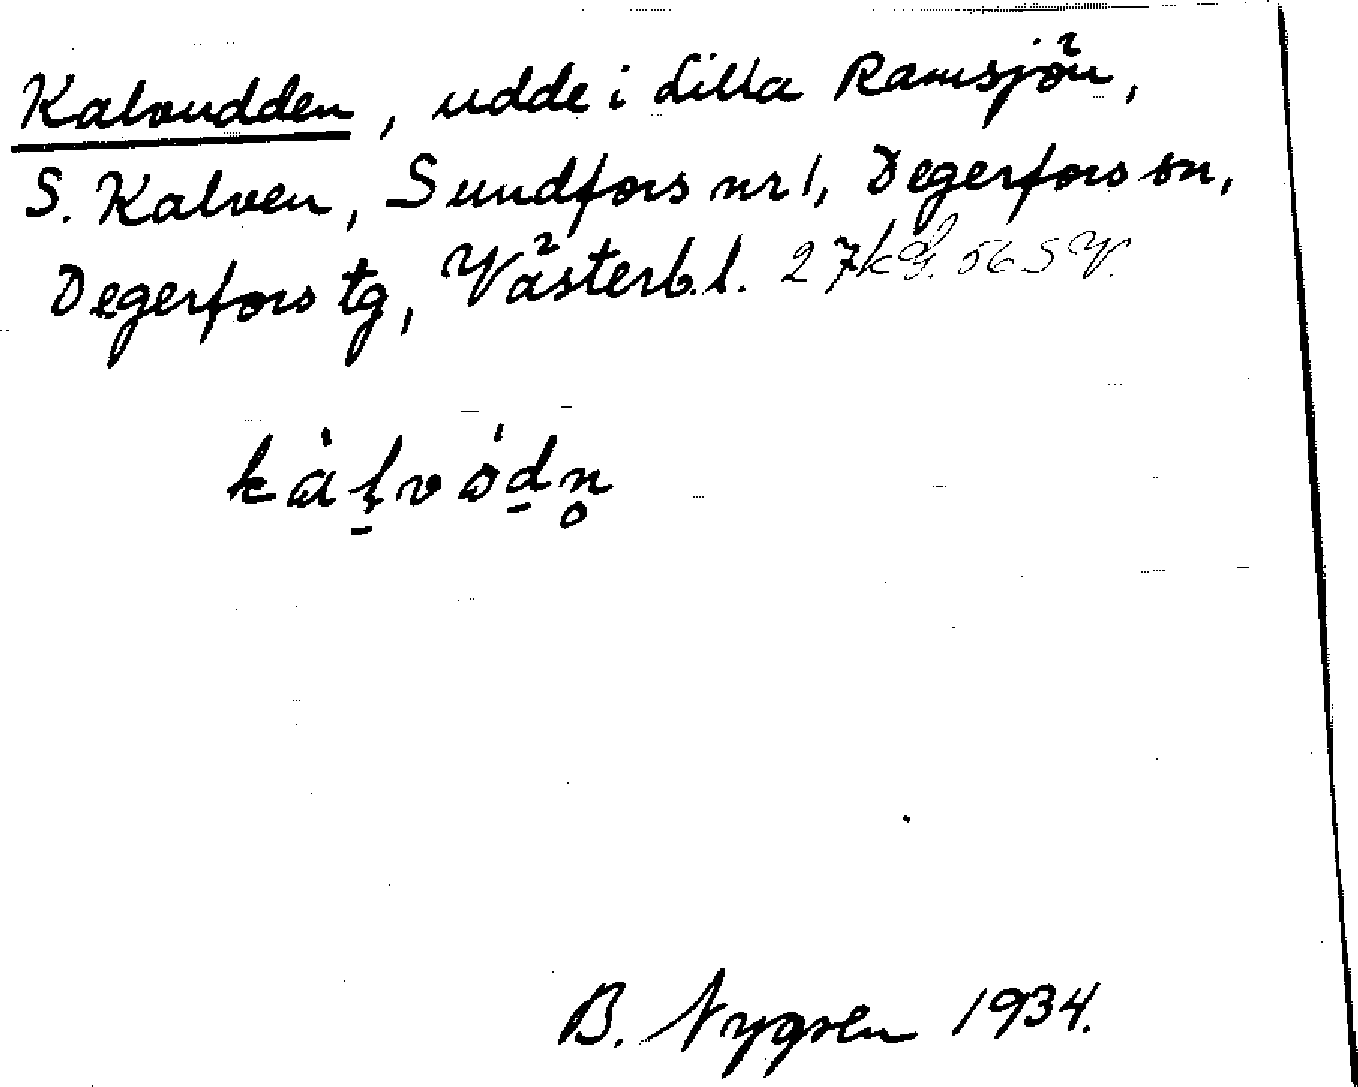 Kalvudden, udde i Lilla Ramsjön,
S. Kalven, Sundfors nr 1, Degerfors sn,
Degerfors tg, Västerb. l. 27 k G. 56 S V.
kàḻvödn̥
B. Nygren 1934.